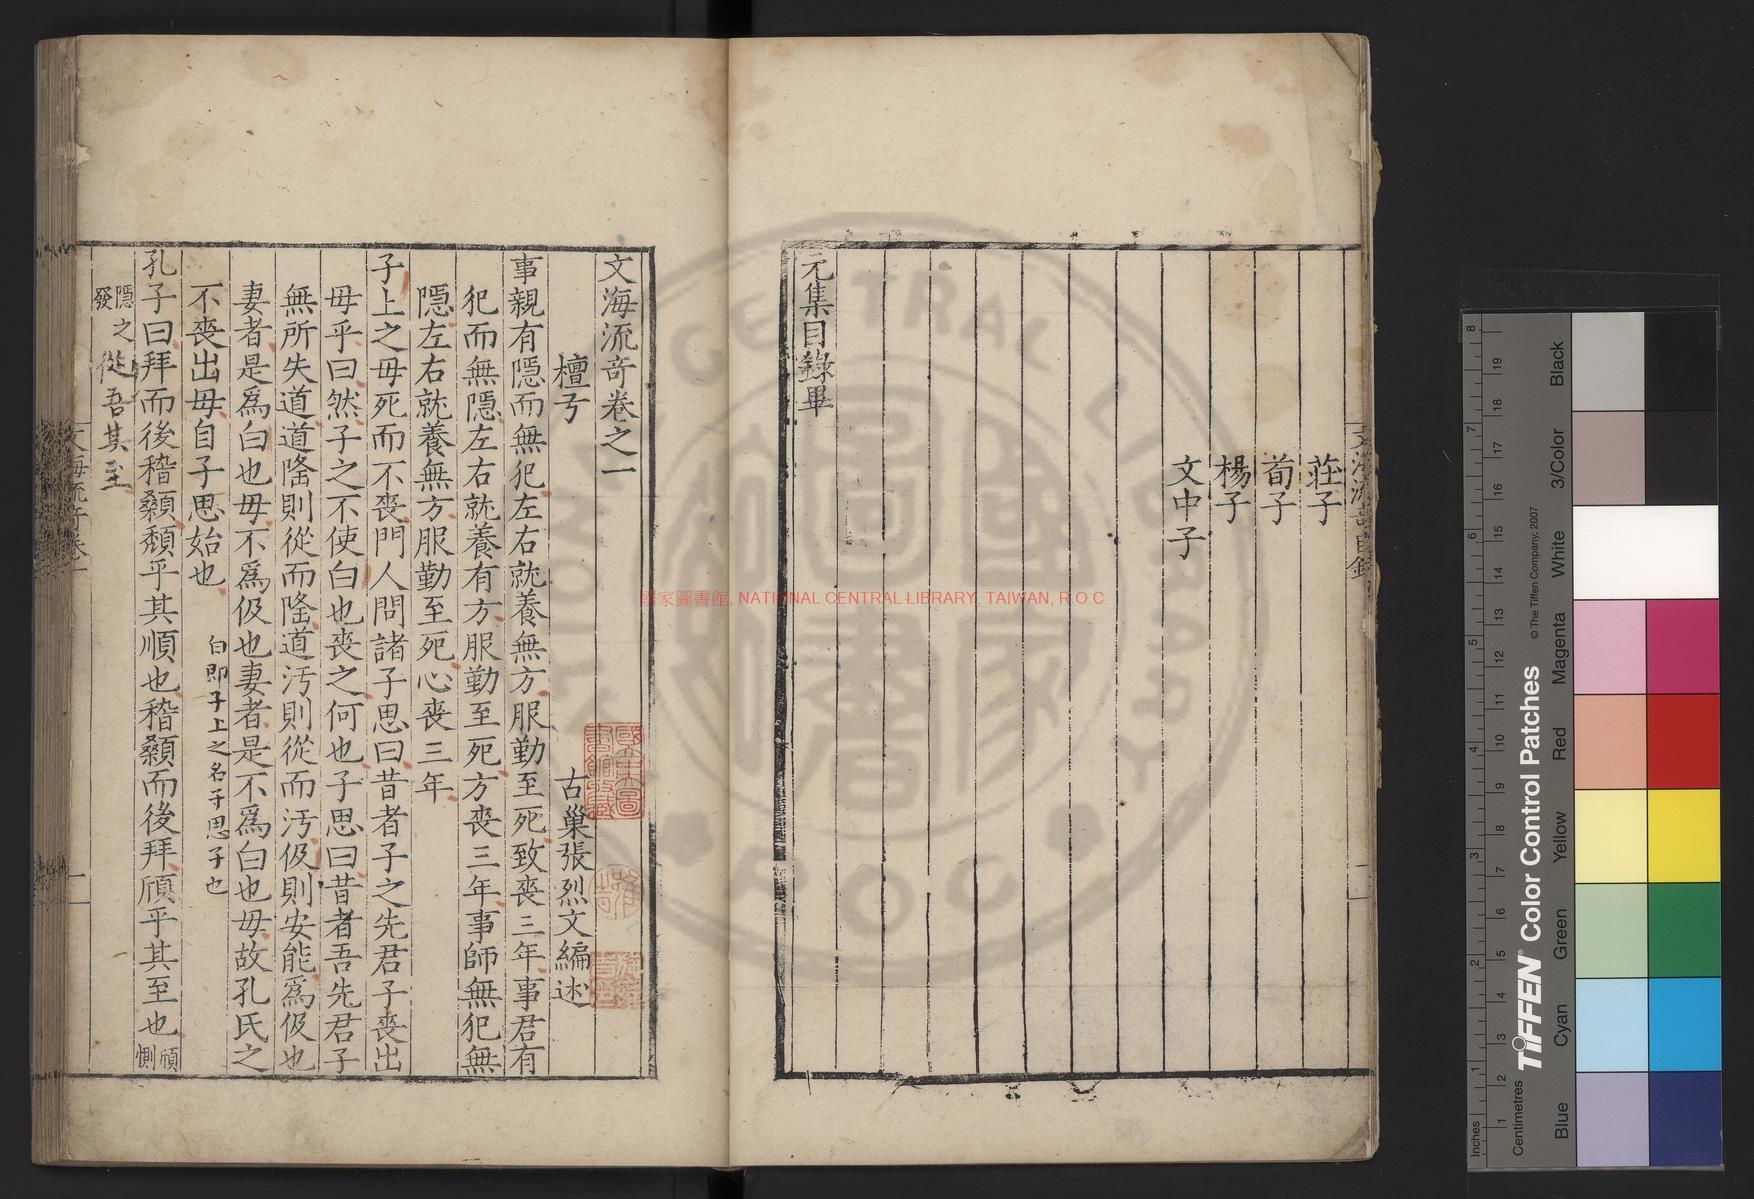 文海流奇目錄
莊子
荀子
楊子
文中子
元集目錄畢
文海流奇卷之一
檀弓
古巢張烈文編述
事親有隱而無犯左右就養無方服勤至死致喪三年事君有
犯而無隱左右就養有方服勤至死方喪三年事師無犯無
隱左右就養無方服勤至死心喪三年
子上之毋死而不喪門人問諸子思曰昔者子之先君子喪出
毋乎曰然子之不使白也喪之何也子思曰昔者吾先君子
無所失道道隆則從而隆道汚則從而汚伋則安能爲伋也
妻者是爲白也毋不爲伋也妻者是不爲白也毋故孔氏之
不喪出毋自子思始也
白即子上之名子思子也
孔子曰拜而後稽顙頹乎其順也稽顙而後拜頎乎其至也頎惻
隱之發
從吾其至
文海流奇卷一
國立中央圖書館收藏
國家圖書館, NATIONAL CENTRAL LIBRARY, TAIWAN, R.O.C.
TIFFEN® Color Control Patches
© The Tiffen Company, 2007
Centimetres
Inches
Blue
Cyan
Green
Yellow
Red
Magenta
White
3/Color
Black